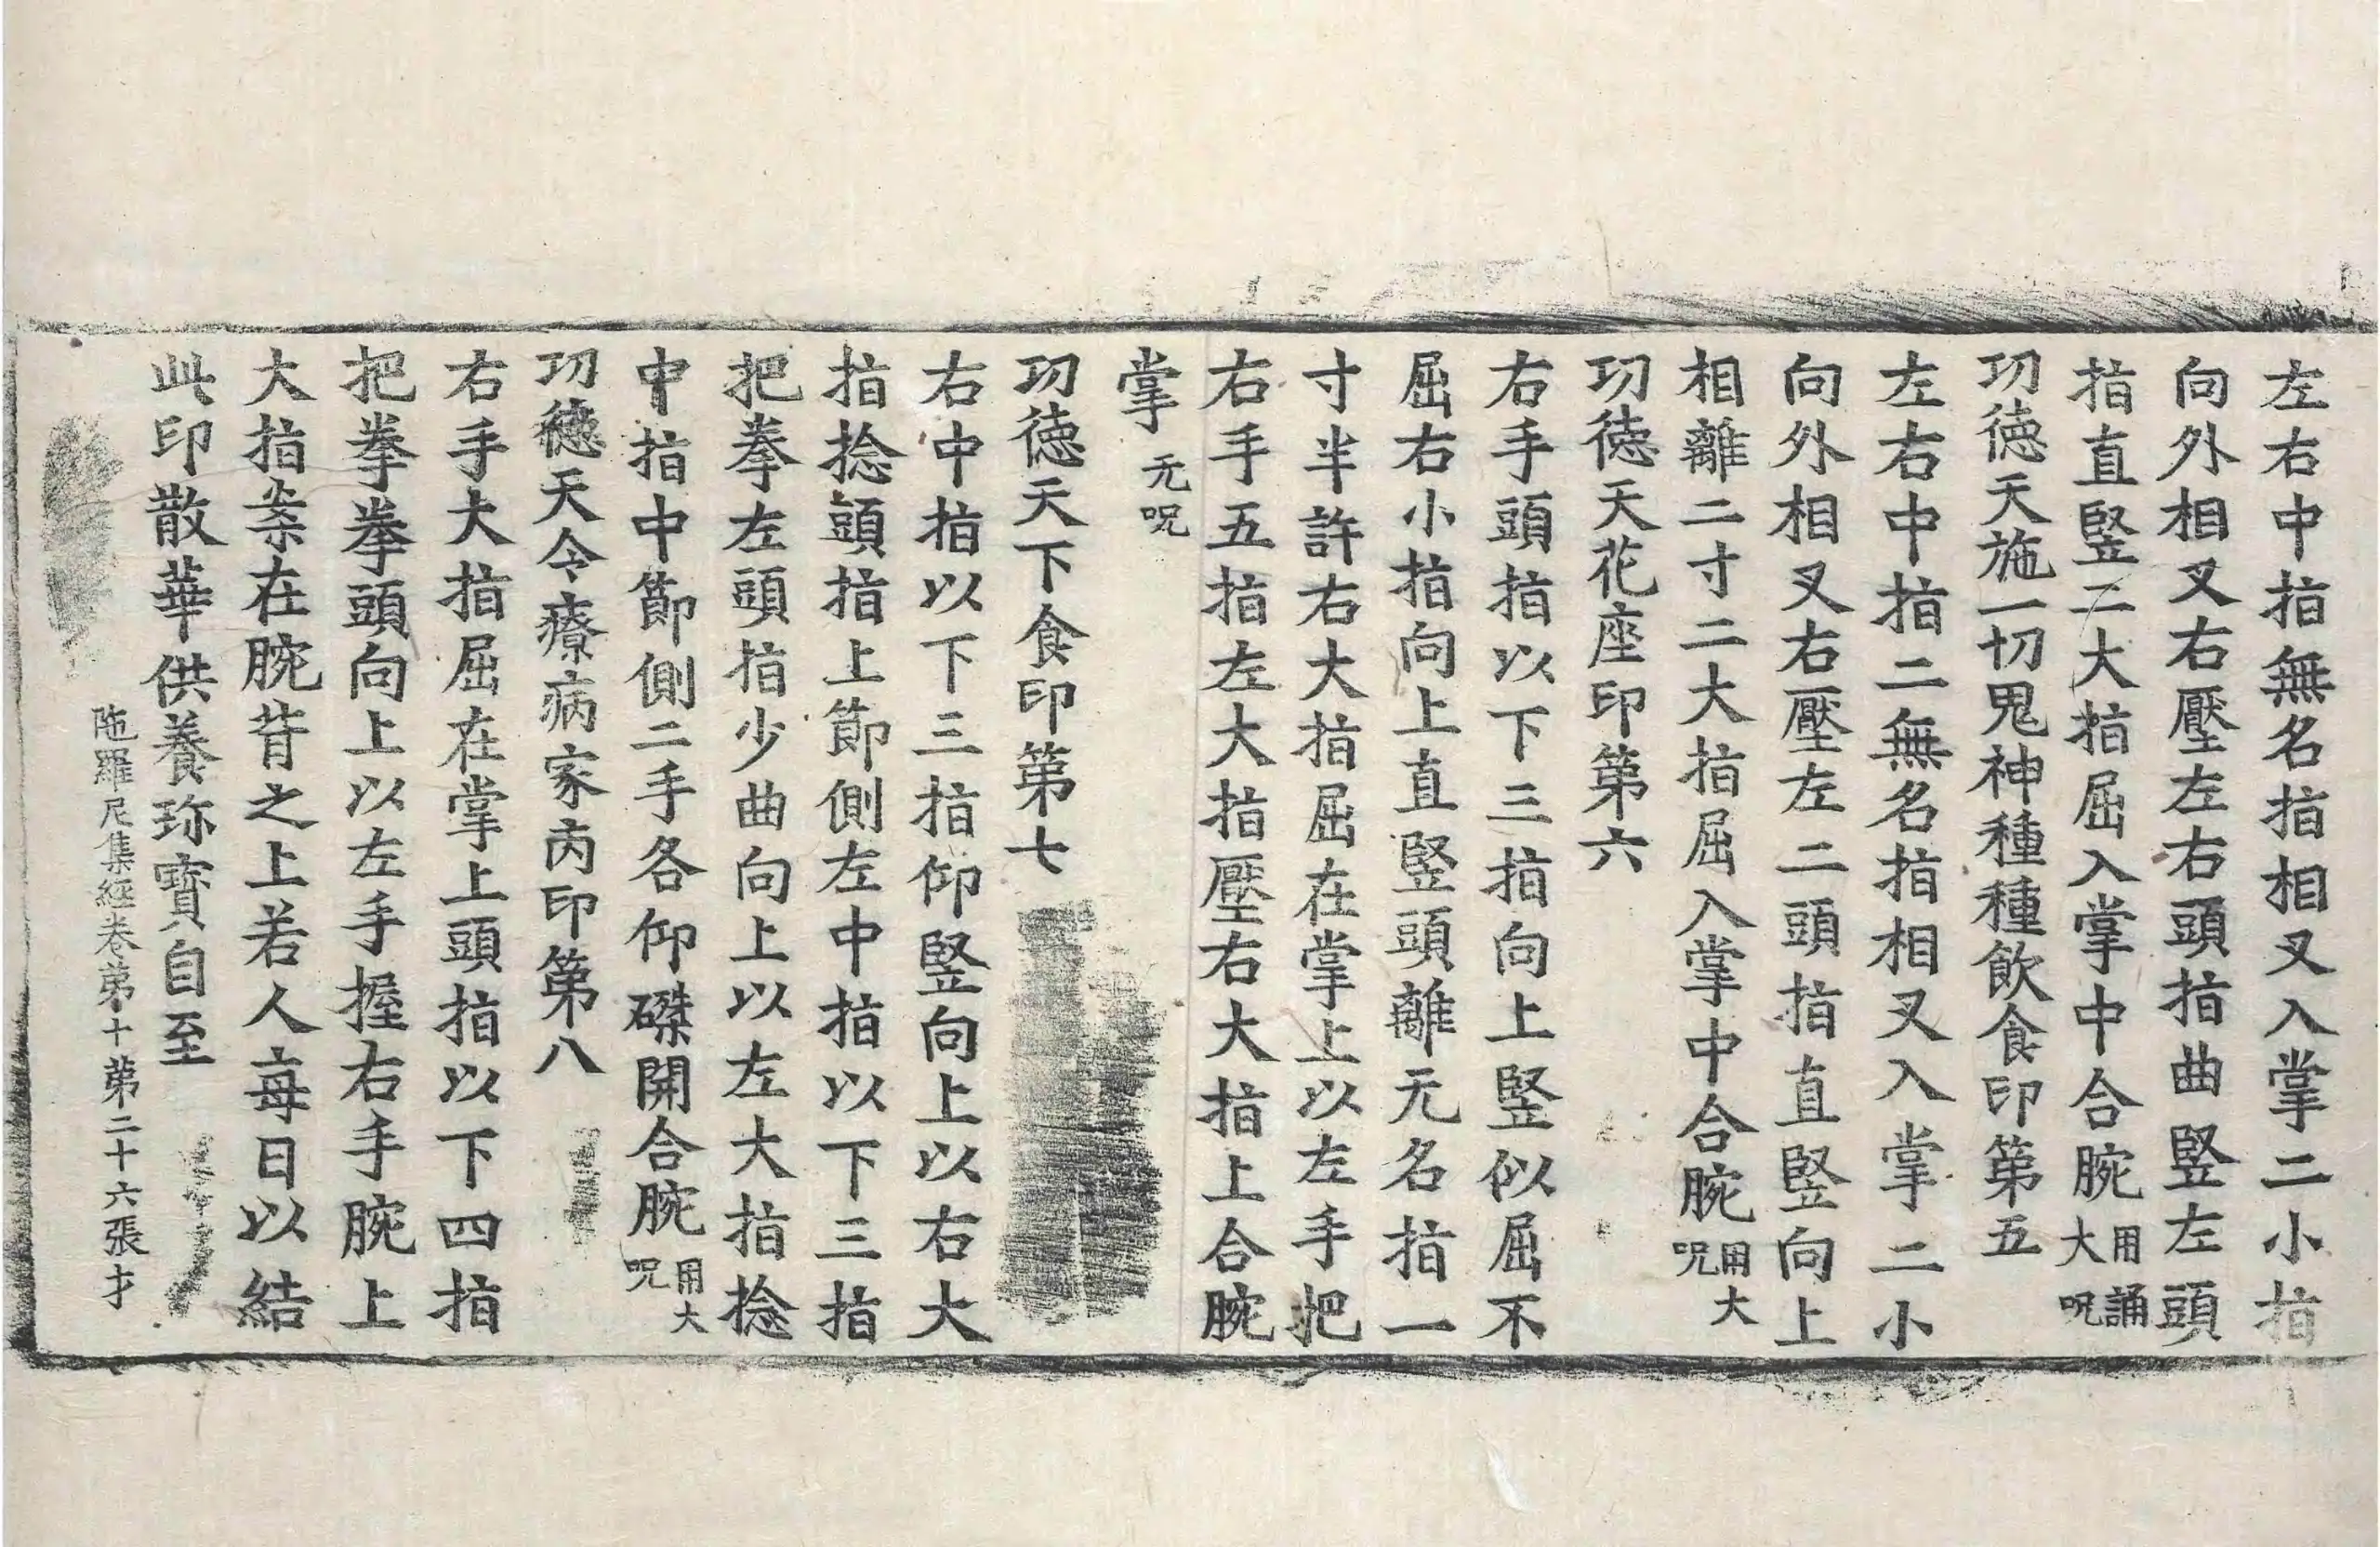 左右中指無名指相叉入掌二小指
向外相叉右壓左右頭指曲竪左頭
指直竪二大指屈入掌中合腕用誦大呪
功徳天施一切鬼神種種飲食印第五
左右中指二無名指相叉入掌二小
向外相叉右壓左二頭指直竪向上
相離二寸二大指屈入掌中合腕用大呪
功徳天花座印第六
右手頭指以下三指向上竪似屈不
屈右小指向上直竪頭離无名指一
寸半許右大指屈在掌上以左手把
右手五指左大指壓右大指上合腕
掌无呪
功徳天下食印第七
右中指以下三指仰竪向上以右大
指捻頭指上節側左中指以下三指
把拳左頭指少曲向上以左大指捻
中指中節側二手各仰磔開合腕用大呪
功徳天令療病家內印第八
右手大指屈在掌上頭指以下四指
把拳拳頭向上以左手握右手腕上
大指案在腕背之上若人每日以結
此印散華供養珎寳自至
陁羅尼集經卷第十第二十六張才